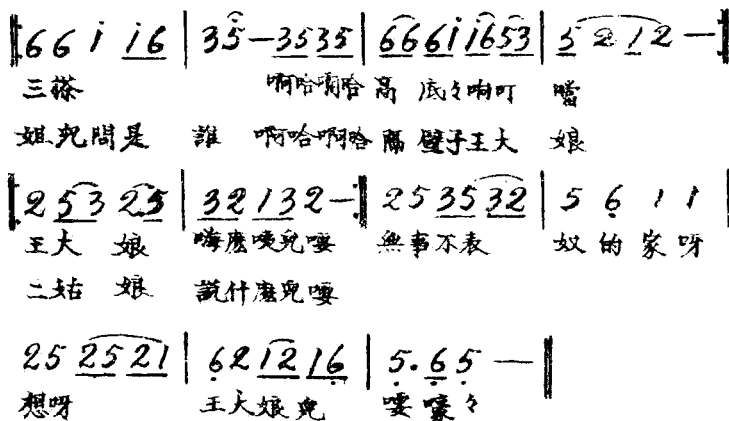 6 6 i i6 | 3 5 — 35 35 | 66 6i i6 53 | 5 2 1 2 —
三搽 啊哈啊哈 高 底々响叮 噹
姐兒問是 誰 啊哈啊哈 隔壁子王大 娘
2 53 25 | 32 13 2 — | 25 35 32 | 5 6 1 1 |
王大 娘 嗨麽咦兒嘤 無事不表 奴的家呀
二姑 娘 説什麽兒嘤
25 25 21 | 62 12 16 | 5. 6 5 —
想呀 王大娘兒 嘤嚎々